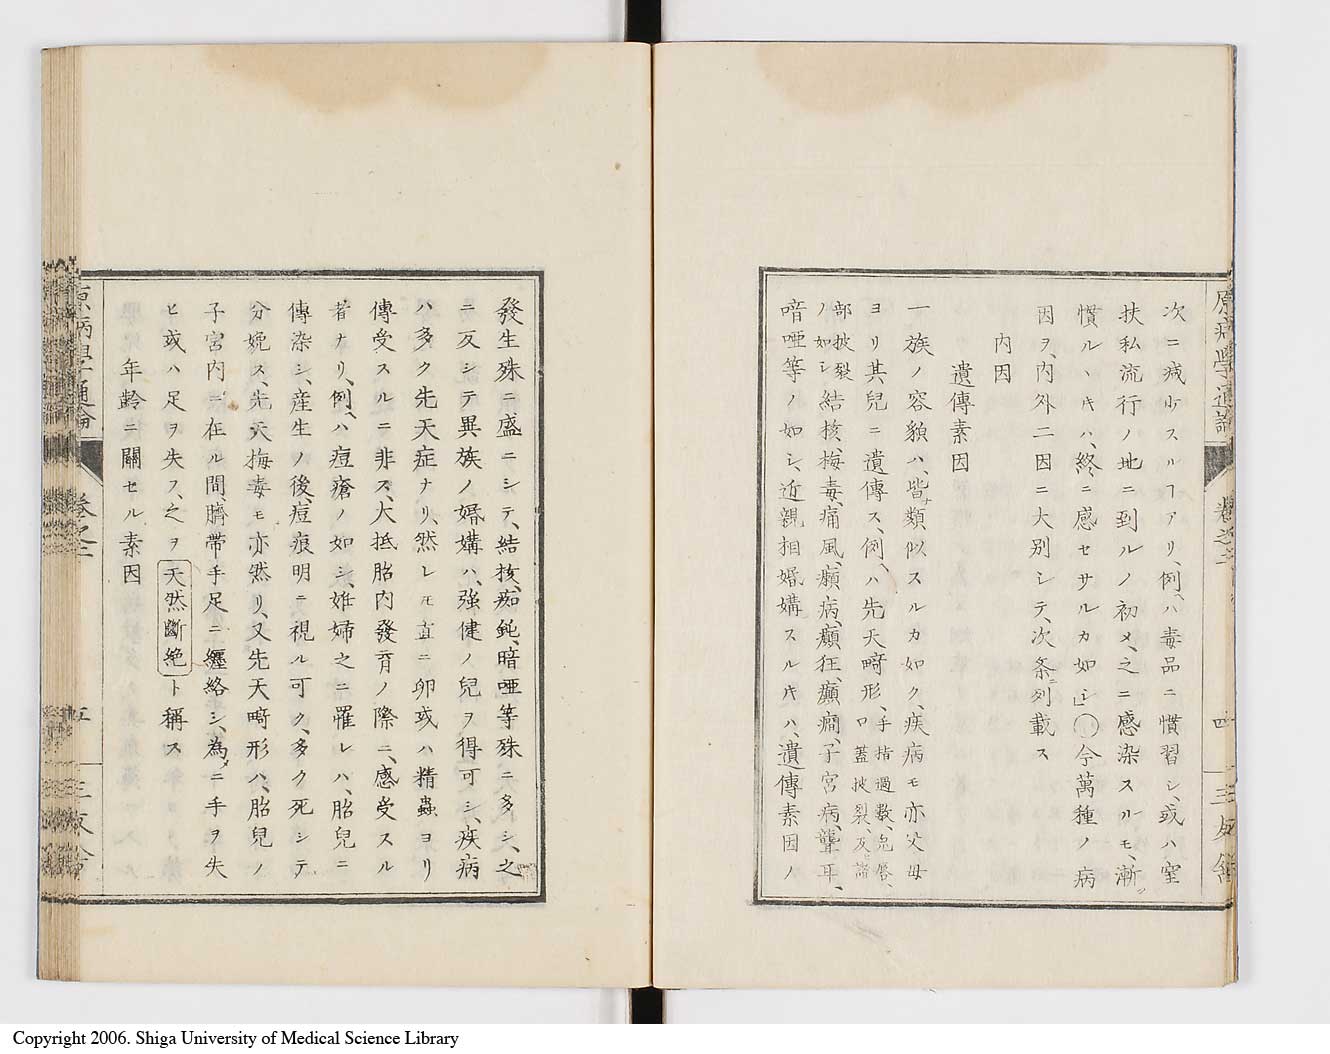 原病學通論 卷之二 四 三友舍
次ニ減少スルヿアリ、例ハ毒品ニ慣習シ、或ハ窒
扶私流行ノ地ニ到ルノ初メ、之ニ感染スルモ、漸
慣ルヽキハ、終ニ感セサルカ如シ」○今萬種ノ病
因ヲ、内外二因ニ大別シテ、次条ニ列載ス
内因
遺傳素因
一族ノ容貌ハ、皆類似スルカ如ク、疾病モ亦父母
ヨリ其兒ニ遺傳ス、例ハ先天畸形、手指過數、兎唇、
口蓋披裂、及諸
部披裂
ノ如シ結核、梅毒、痛風、癩病、癲狂、癲癇、子宮病、聾耳、
喑啞等ノ如シ、近親相婚媾スルキハ、遺傳素因ノ
發生殊ニ盛ニシテ、結核、痴鈍、暗啞等殊ニ多シ、之
ニ反シテ異族ノ婚媾ハ、強健ノ兒ヲ得可シ、疾病
ハ多ク先天症ナリ、然レモ直ニ卵或ハ精蟲ヨリ
傳受スルニ非ス、大抵胎内發育ノ際ニ、感受スル
者ナリ、例ハ痘瘡ノ如シ、姙婦之ニ罹レハ、胎兒ニ
傳染シ、産生ノ後、痘痕明ニ視ル可ク、多ク死シテ
分娩ス、先天梅毒モ亦然リ、又先天畸形ハ、胎兒ノ
子宮内ニ在ル間、臍帶手足ニ纒絡シ、為ニ手ヲ失
ヒ或ハ足ヲ失フ、之ヲ天然斷絶ト稱ス
年齡ニ關セル素因
原病學通論 卷之二 五 三友舍
Copyright 2006. Shiga University of Medical Science Library